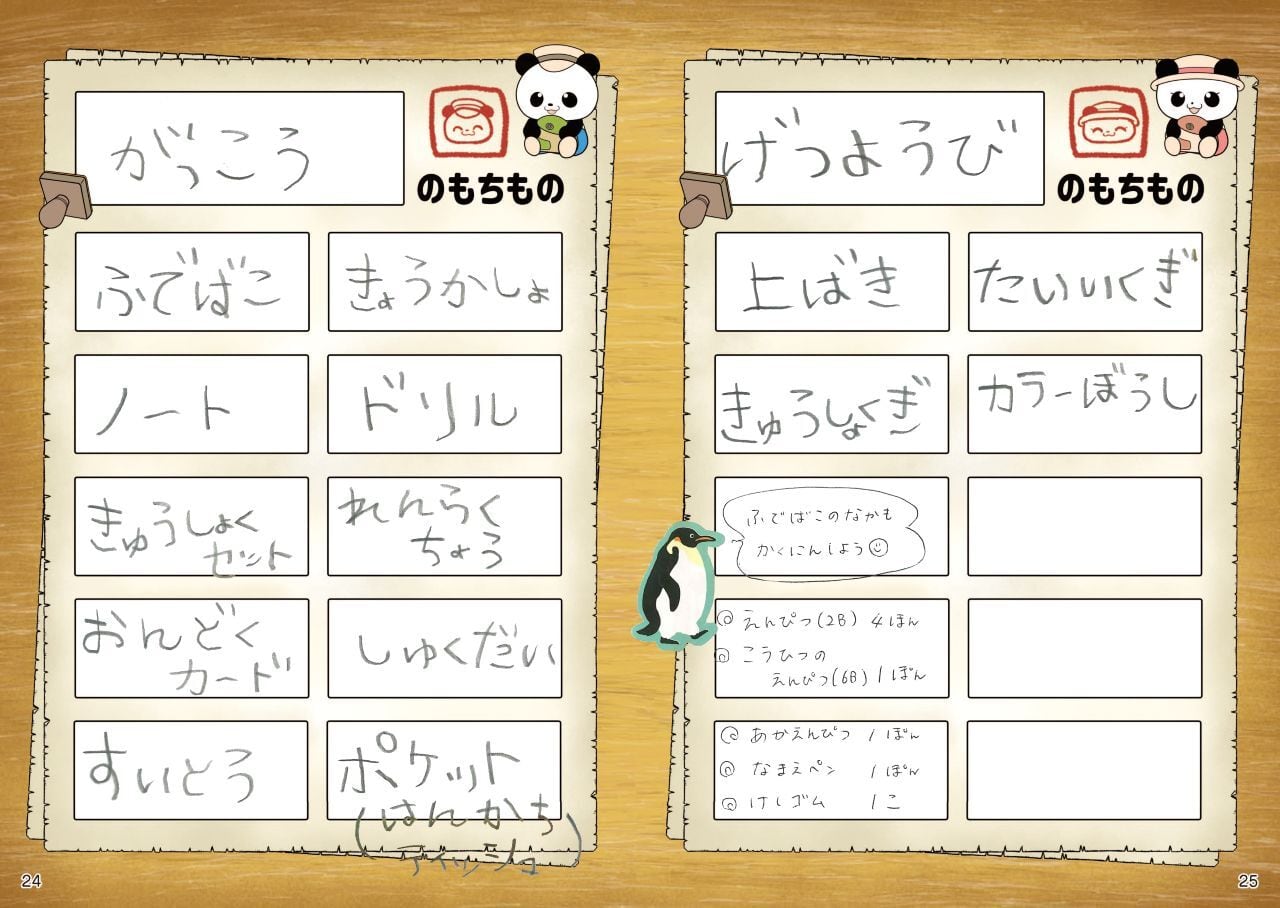 がっこう
のもちもの
ふでばこ
きょうかしょ
ノート
ドリル
きゅうしょく
セット
れんらく
ちょう
おんどく
カード
しゅくだい
すいとう
ポケット
(はんかち
ティッシュ)
24
げつようび
のもちもの
上ばき
たいいくぎ
きゅうしょくぎ
カラーぼうし
ふでばこのなかも
かくにんしよう
えんぴつ(2B) 4ほん
こうひつの
えんぴつ(6B) 1ぽん
あかえんぴつ 1ぽん
なまえペン 1ぽん
けしゴム 1こ
25